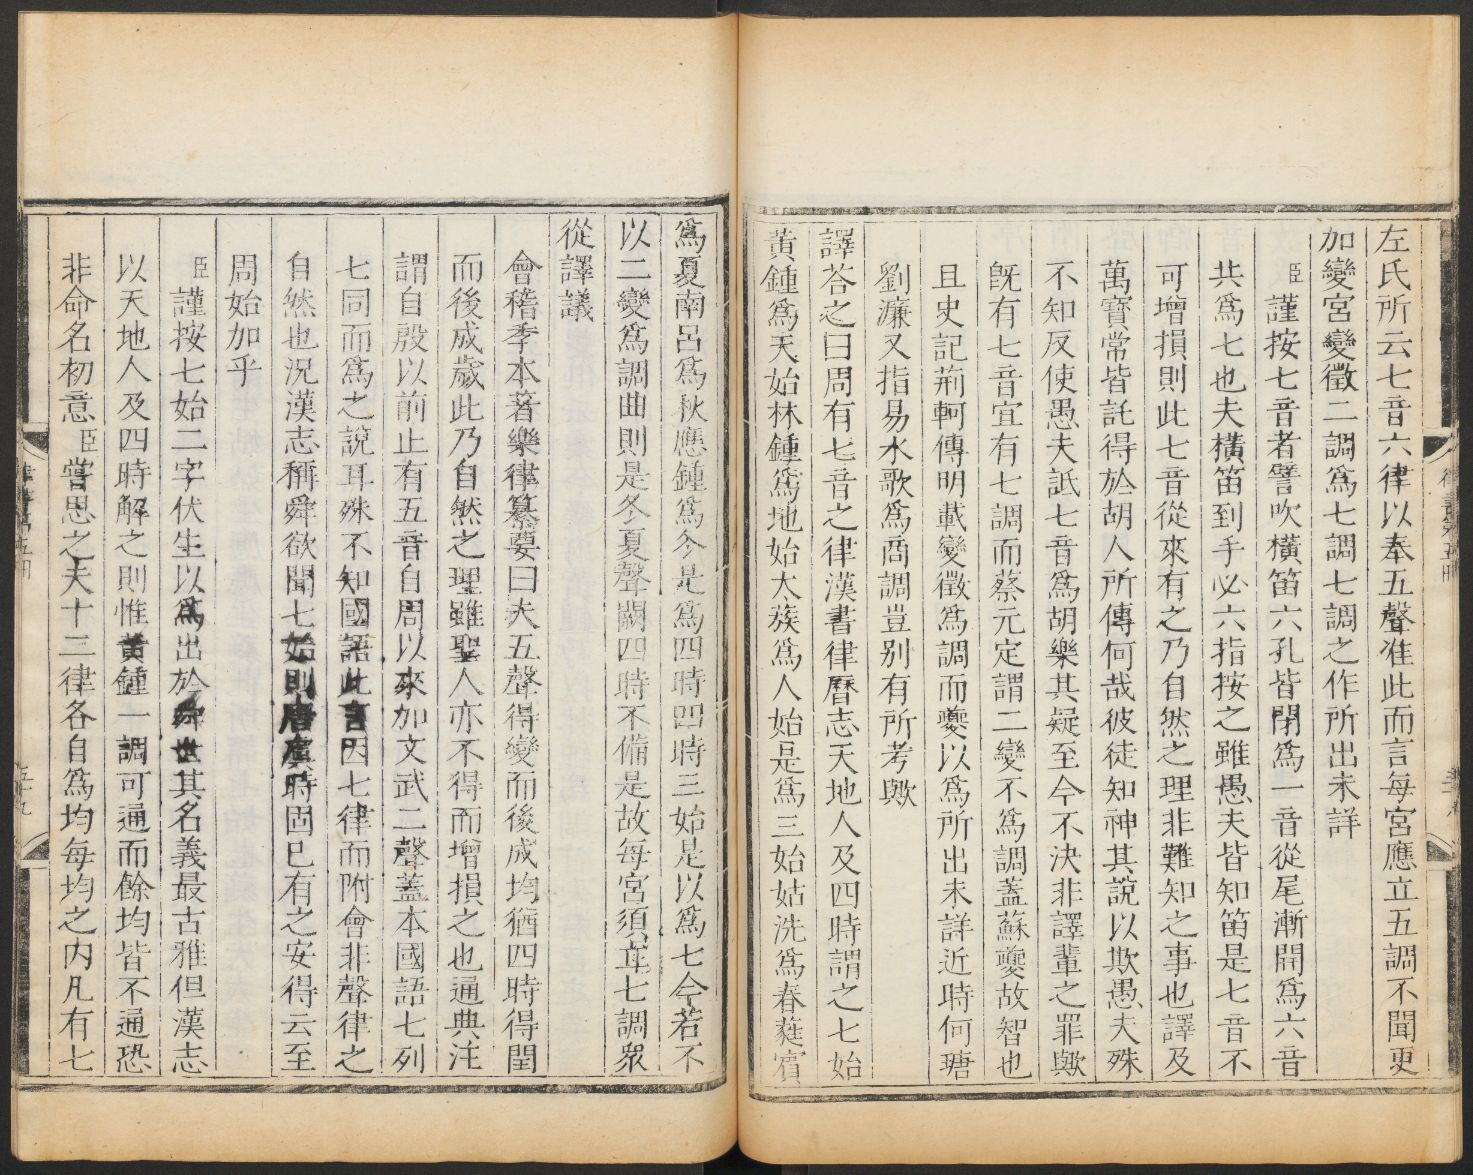 左氏所云七音六律以奉五聲准此而言每宮應立五調不聞更
加變宮變徵二調爲七調七調之作所出未詳
臣謹按七音者譬吹橫笛六孔皆閉爲一音從尾漸開爲六音
共爲七也夫橫笛到手必六指按之雖愚夫皆知笛是七音不
可增損則此七音從來有之乃自然之理非難知之事也譯及
萬寶常皆託得於胡人所傳何哉彼徒知神其說以欺愚夫殊
不知反使愚夫詆七音爲胡樂其疑至今不決非譯輩之罪歟
旣有七音宜有七調而蔡元定謂二變不爲調蓋蘇夔故智也
且史記荊軻傳明載變徵爲調而夔以爲所出未詳近時何瑭
劉濂又指易水歌爲商調豈別有所考歟
譯荅之曰周有七音之律漢書律曆志天地人及四時謂之七始
黃鍾爲天始林鍾爲地始太蔟爲人始是爲三始姑洗爲春蕤賓
爲夏南呂爲秋應鍾爲冬是爲四時四時三始是以爲七今若不
以二變爲調曲則是冬夏聲闕四時不備是故每宮須立七調衆
從譯議
會稽季本著樂律纂要曰夫五聲得變而後成均猶四時得閏
而後成歲此乃自然之理雖聖人亦不得而增損之也通典注
謂自殷以前止有五音自周以來加文武二聲蓋本國語七列
七同而爲之說耳殊不知國語此言因七律而附會非聲律之
自然也況漢志稱舜欲聞七始則唐虞時固已有之安得云至
周始加乎
臣謹按七始二字伏生以爲出於舜世其名義最古雅但漢志
以天地人及四時解之則惟黃鍾一調可通而餘均皆不通恐
非命名初意臣嘗思之夫十二律各自爲均每均之內凡有七